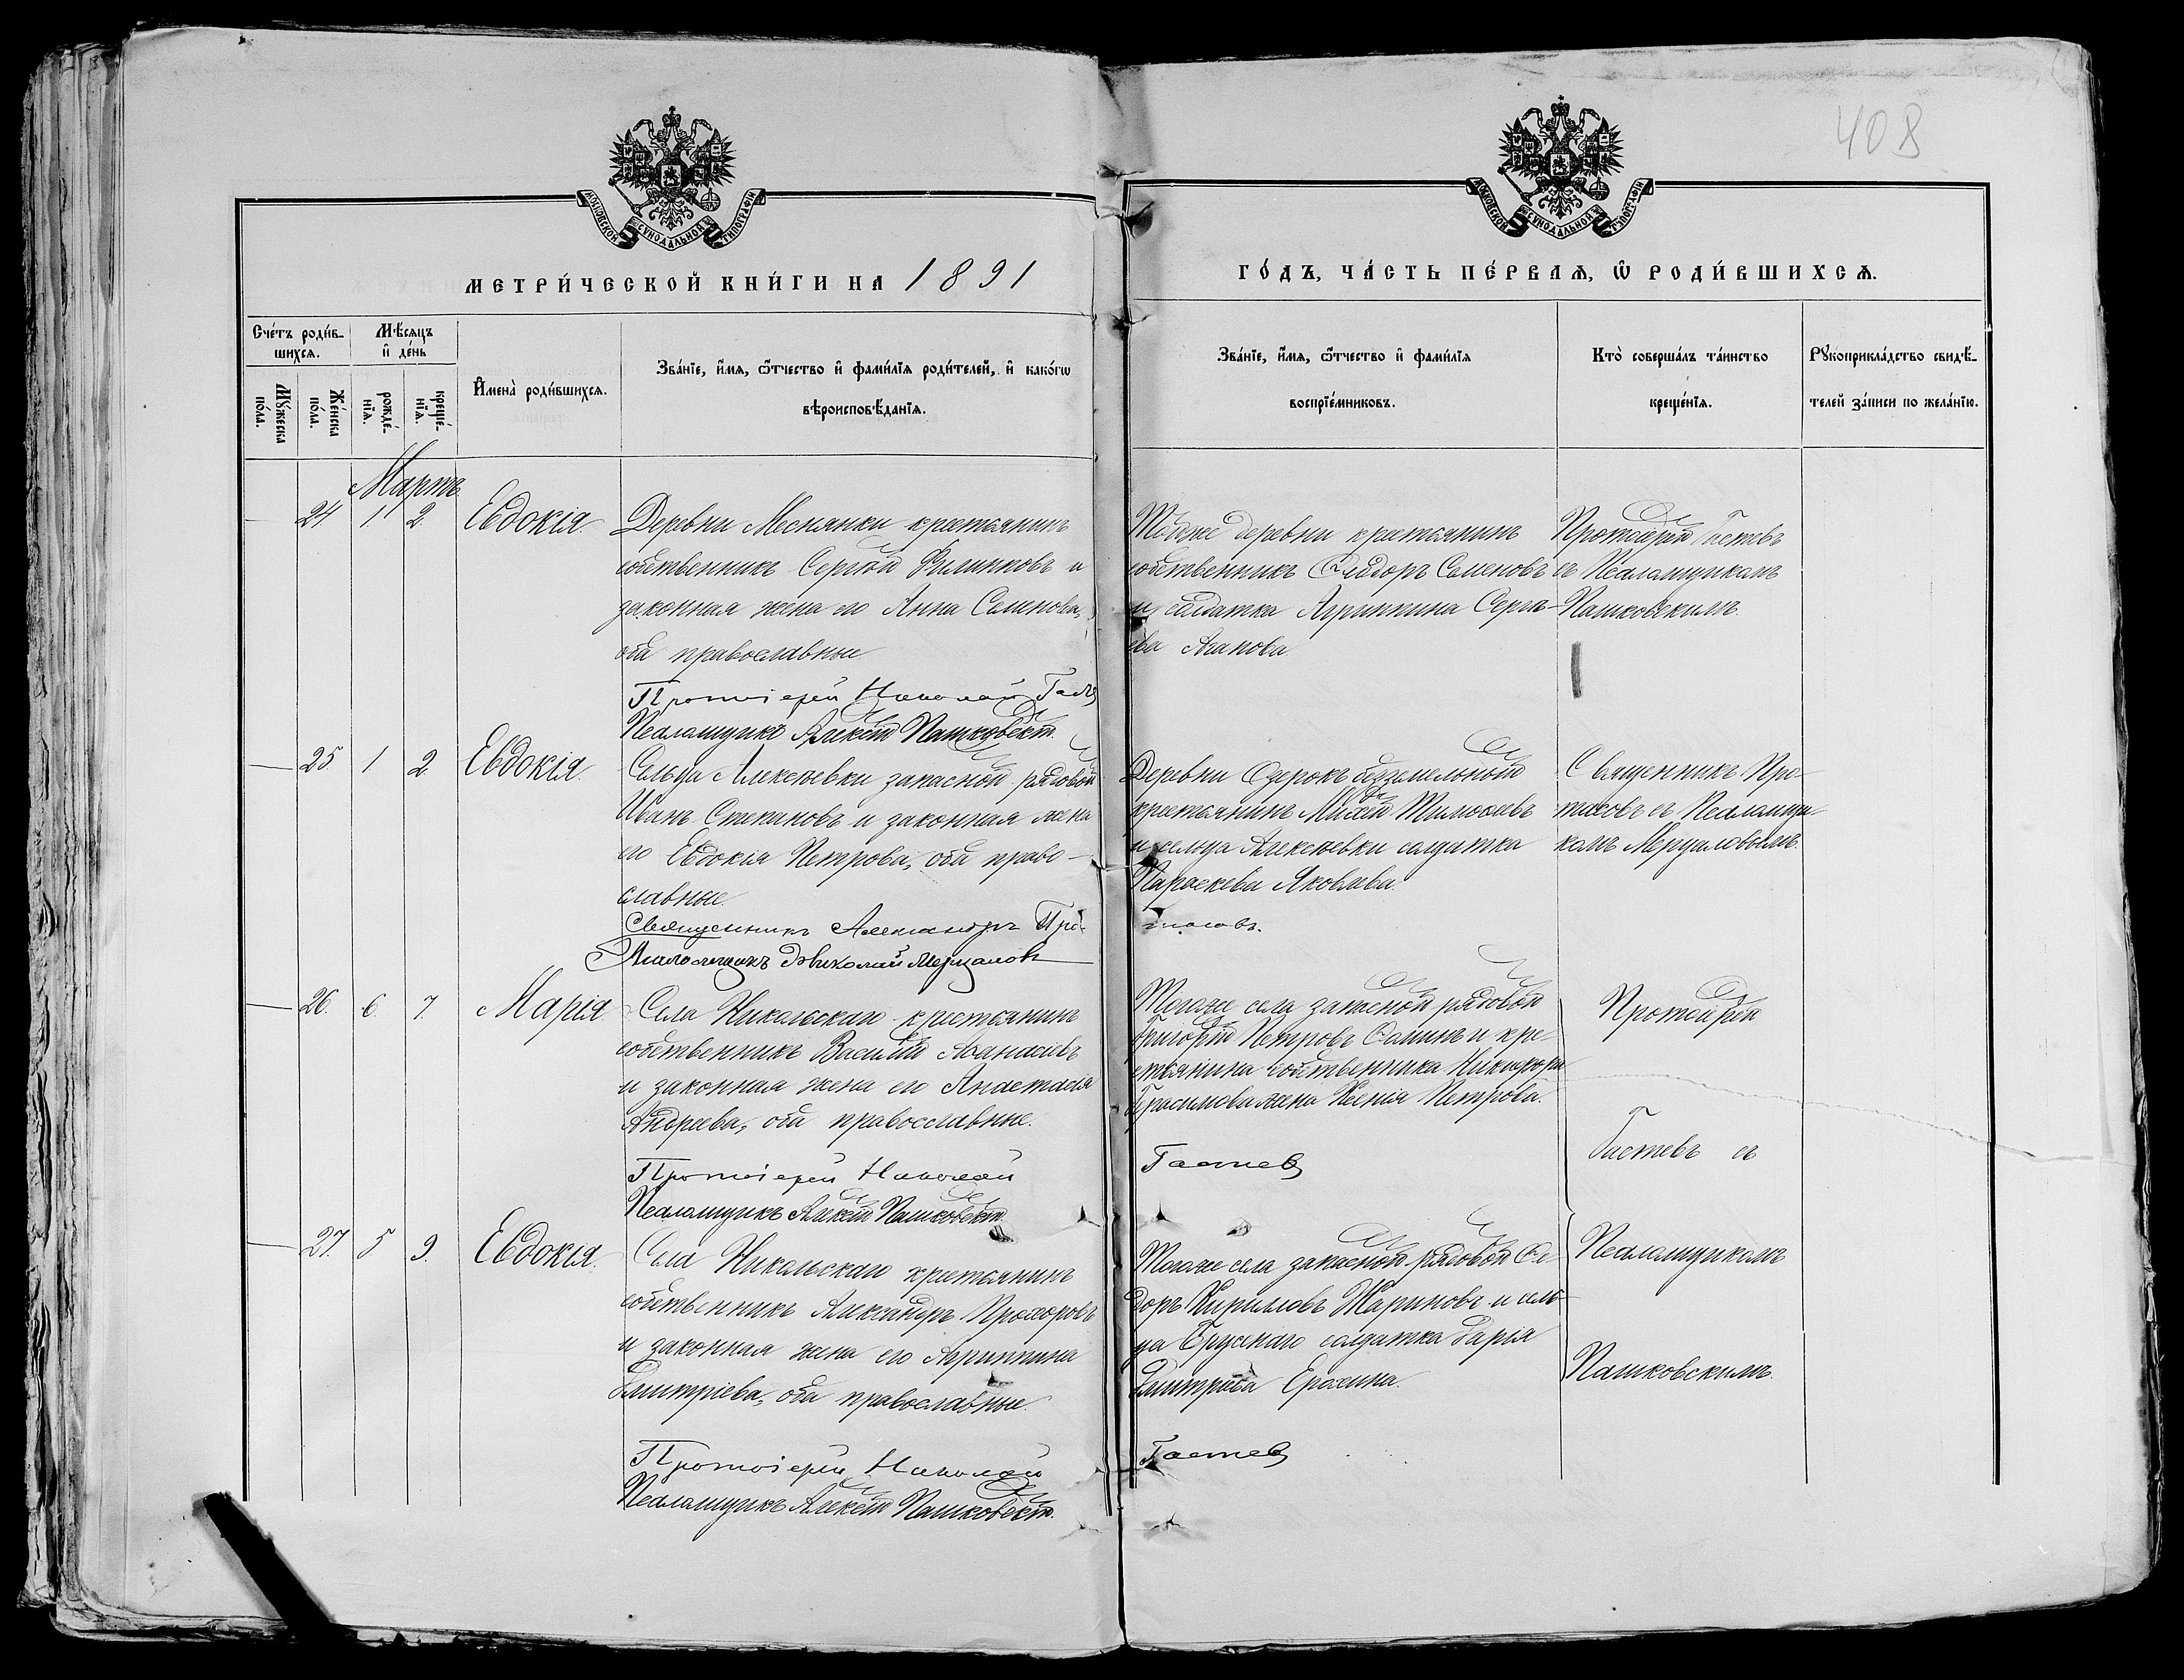 408
МОСКОВСКОЙ СѴНОДАЛЬНОЙ ТИПОГРАФІИ
МОСКОВСКОЙ СѴНОДАЛЬНОЙ ТИПОГРАФІИ
МЕТРИ́ЧЕСКОЙ КНИ́ГИ НА 1891
ГО́ДЪ, ЧА́СТЬ ПЕ́РВАѦ, Ѽ РОДИ́ВШИХСѦ.
Сче́тъ роди́в-
шихсѧ.
Мꙋ́жеска
по́ла.
Же́нска
по́ла.
Мѣ́сѧцъ
и҆ де́нь
рожде́-
нїѧ.
креще́-
нїѧ.
И҆мена̀ роди́вшихсѧ.
Зва́нїе, и҆́мѧ, ѻ҆́тчество и҆ фами́лїѧ роди́телей, и҆ како́гѡ
вѣроисповѣ́данїѧ.
Зва́нїе, и҆́мѧ, ѻ҆́тчество и҆ фами́лїѧ
воспрїе́мниковъ.
Кто̀ соверша́лъ та́инство
креще́нїѧ.
Рꙋкоприкла́дство свидѣ́-
телей за́писи по жела́нїю.
Мартъ
24 1 2. Евдокія.
Деревни Меснянки крестьянинъ
собственникъ Сергѣй Филиповъ и
законная жена его Анна Семенова,
оба православные.
Протоіерей Николай Гастев
Псаломщикъ Алексѣй Пашковскій.
Тойже деревни крестьянинъ
собственникъ Ѳедоръ Семеновъ
и солдатка Агриппина Серге-
ева Агапова
Протоіерей Гастевъ
съ Псаломщикомъ
Пашковскимъ.
25 1 2 Евдокія.
Сельца Алексѣевки запасной рядовой
Иванъ Степановъ и законная жена
его Евдокія Петрова, оба право-
славные.
Священникъ Александръ Про-
тасовъ.
Псаломщикъ Николай Мерцаловъ
Деревни Озерокъ безземельной
крестьянинъ Михей Тимоѳеевъ
и сельца Алексѣевки солдатка
Параскева Яковлева.
Священникъ Про-
тасовъ съ Псаломщи-
комъ Мерцаловымъ.
26. 6. 7. Марія.
Села Никольскаго крестьянинъ
собственникъ Василій Аѳанасьевъ
и законная жена его Анастасія
Андреева, оба православные.
Протоіерей Николай
Гастев
Псаломщикъ Алексѣй Пашковскій.
Тогоже села запасной рядовой
Григорій Петровъ Ѳоминъ и кре-
стьянина собственника Никифора
Герасимова жена Ксенія Петрова.
Протоіерей
Гастевъ съ
Псаломщикомъ
Пашковскимъ.
27. 5 9. Евдокія.
Села Никольскаго крестьянинъ
собственникъ Александръ Прохоровъ
и законная жена его Агриппина
Дмитріева, оба православные.
Протоіерей Николай
Гастев
Псаломщикъ Алексѣй Пашковскій.
Тогоже села запасной рядовой Ѳе-
доръ Кириловъ Жариновъ и сель-
ца Бруснаго солдатка Дарія
Дмитріева Ерохина.